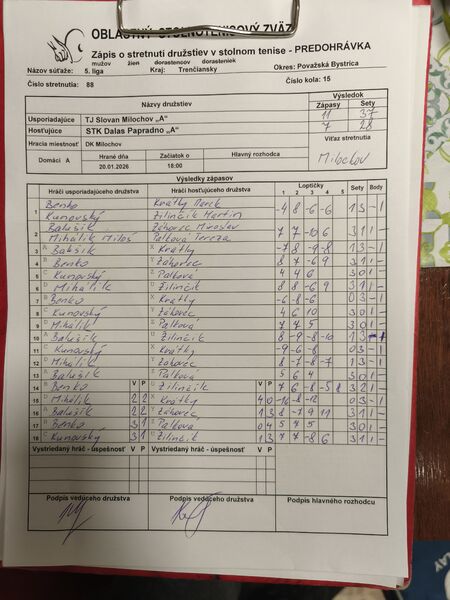 OBLASTNÝ STOLNOTENISOVÝ ZVÄZ
Zápis o stretnutí družstiev v stolnom tenise - PREDOHRÁVKA
mužov žien dorastencov dorasteniek
Názov súťaže: 5. liga Kraj: Trenčiansky Okres: Považská Bystrica
Číslo stretnutia: 88 Číslo kola: 15
Názvy družstiev Výsledok
Zápasy Sety
Usporiadajúce TJ Slovan Milochov „A“ 11 37
Hosťujúce STK Dalas Papradno „A“ 7 28
Hracia miestnosť DK Milochov Víťaz stretnutia
Domáci A Hrané dňa Začiatok o Hlavný rozhodca Milochov
20.01.2026 18:00
Výsledky zápasov
Hráči usporiadajúceho družstva Hráči hosťujúceho družstva Loptičky Sety Body
1 2 3 4 5
1 Benko Krátky Marek -4 8 -6 -6 1 3 - 1
Kunovský Žilinčík Martin
2 Balušík Záhorec Miroslav 7 7 -10 6 3 1 1 -
Mihálik Miloš Palková Tereza
3 A Balušík X Krátky -7 8 -9 -8 1 3 - 1
4 B Benko Y Záhorec 8 7 -6 9 3 1 1 -
5 C Kunovský Z Palková 4 4 6 3 0 1 -
6 D Mihálik U Žilinčík 8 8 -6 9 3 1 1 -
7 B Benko X Krátky -6 -8 -6 0 3 - 1
8 C Kunovský Y Záhorec 4 6 10 3 0 1 -
9 D Mihálik Z Palková 7 4 5 3 0 1 -
10 A Balušík U Žilinčík 8 -9 -8 -10 1 3 - 1
11 C Kunovský X Krátky -9 -6 -8 0 3 - 1
12 D Mihálik Y Záhorec 8 -7 -8 -7 1 3 - 1
13 A Balušík Z Palková 5 6 4 3 0 1 -
14 B Benko V P U Žilinčík V P 7 6 -8 -5 8 3 2 1 -
15 D Mihálik 2 2 X Krátky 4 0 -10 -8 -12 0 3 - 1
16 A Balušík 2 2 Y Záhorec 1 3 8 -7 9 11 3 1 1 -
17 B Benko 3 1 Z Palková 0 4 5 7 5 3 0 1 -
18 C Kunovský 3 1 U Žilinčík 1 3 7 7 -8 6 3 1 1 -
Vystriedaný hráč - úspešnosť V P Vystriedaný hráč - úspešnosť V P
Podpis vedúceho družstva Podpis vedúceho družstva Podpis hlavného rozhodcu